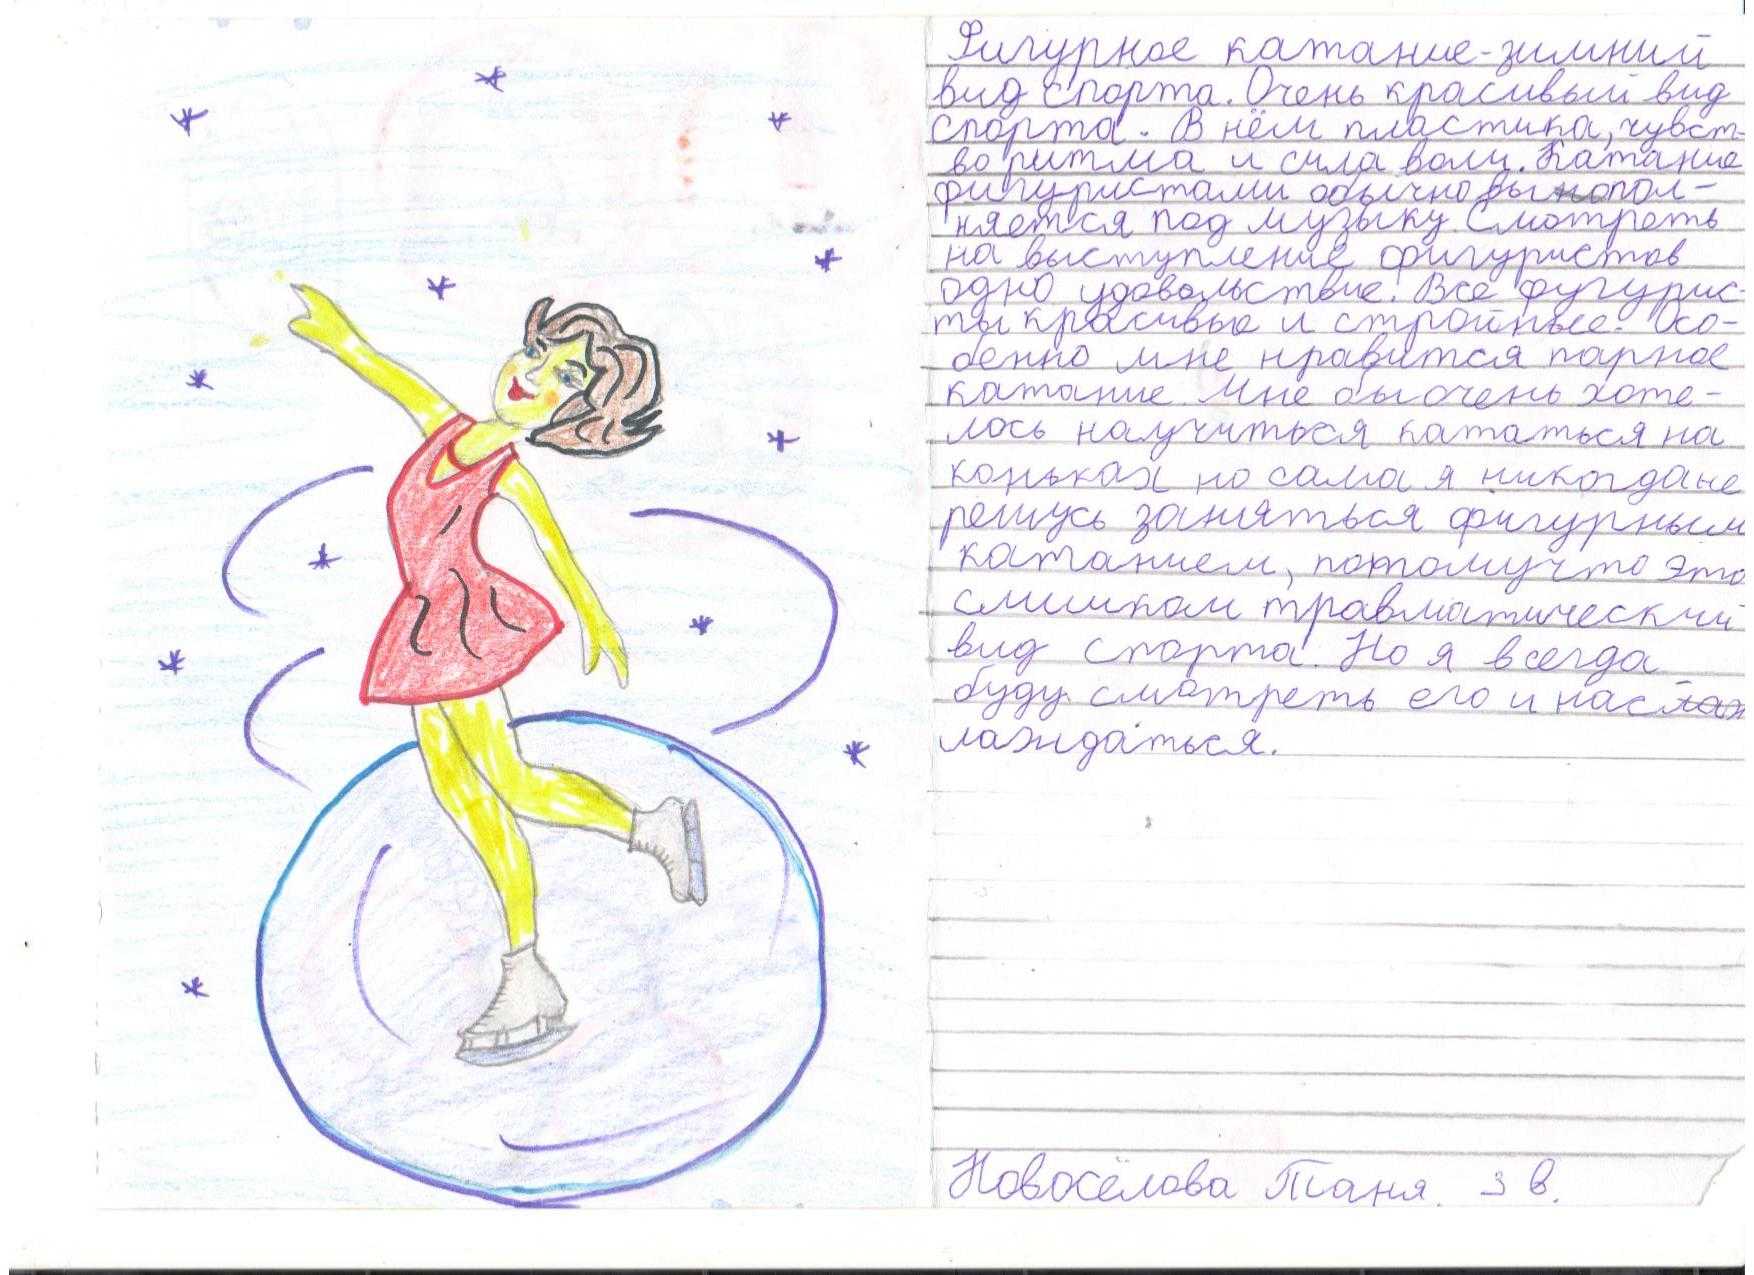 Фигурное катание-зимний
вид спорта. Очень красивый вид
спорта. В нём пластика, чувст-
во ритма и сила воли. Катание
фигуристами обычно выпол-
няется под музыку. Смотреть
на выступление фигуристов
одно удовольствие. Все фугурис-
ты красивые и стройные. Осо-
бенно мне нравится парное
катание. Мне бы очень хоте-
лось научиться кататься на
коньках но сама я никогда не
решусь заняться фигурным
катанием, потому что это
слишком травматический
вид спорта. Но я всегда
буду смотреть его и нас
лаждаться.
Новосёлова Таня. 3 в.